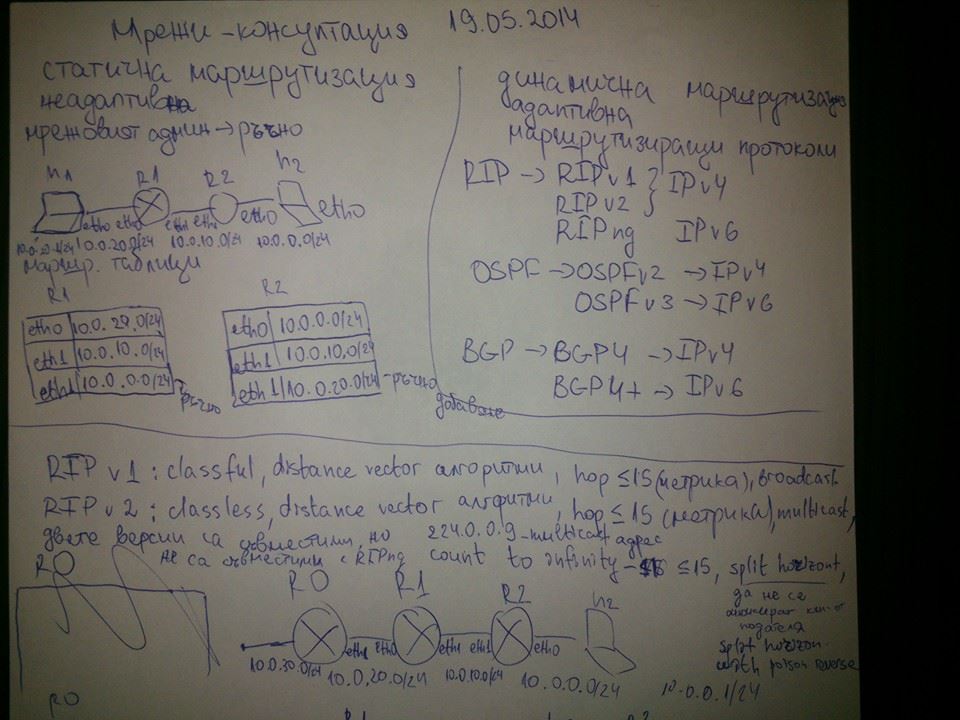 Мрежи - консултация 19.05.2014
статична маршрутизация
неадаптивна
мрежовият админ → ръчно
h1 R1 R2 h2
eth0 eth0 eth1 eth1 eth0 eth0
10.0.20.0/24 10.0.10.0/24 10.0.0.0/24
маршр. таблици
R1
eth0 10.0.20.0/24
eth1 10.0.10.0/24
eth1 10.0.0.0/24
ръчно
R2
eth0 10.0.0.0/24
eth1 10.0.10.0/24
eth1 10.0.20.0/24 - ръчно
добавяне
динамична маршрутизация
адаптивна
маршрутизиращи протоколи
RIP → RIPv1 } IPv4
RIPv2
RIPng IPv6
OSPF → OSPFv2 → IPv4
OSPFv3 → IPv6
BGP → BGP4 → IPv4
BGP4+ → IPv6
RIP v1 : classful, distance vector алгоритми, hop ≤ 15 (метрика), broadcast
RIP v2 : classless, distance vector алгоритми, hop ≤ 15 (метрика), multicast,
двете версии са съвместими, но 224.0.0.9 - multicast адрес
не са съвместими с RIPng count to infinity - ≤ 15, split horizont,
да не се
подателя
split horizon
with poison reverse
R0
R0 R1 R2 h2
eth1 eth0 eth1 eth1 eth0
10.0.30.0/24 10.0.20.0/24 10.0.10.0/24 10.0.0.0/24 10.0.0.1/24
R0
R1